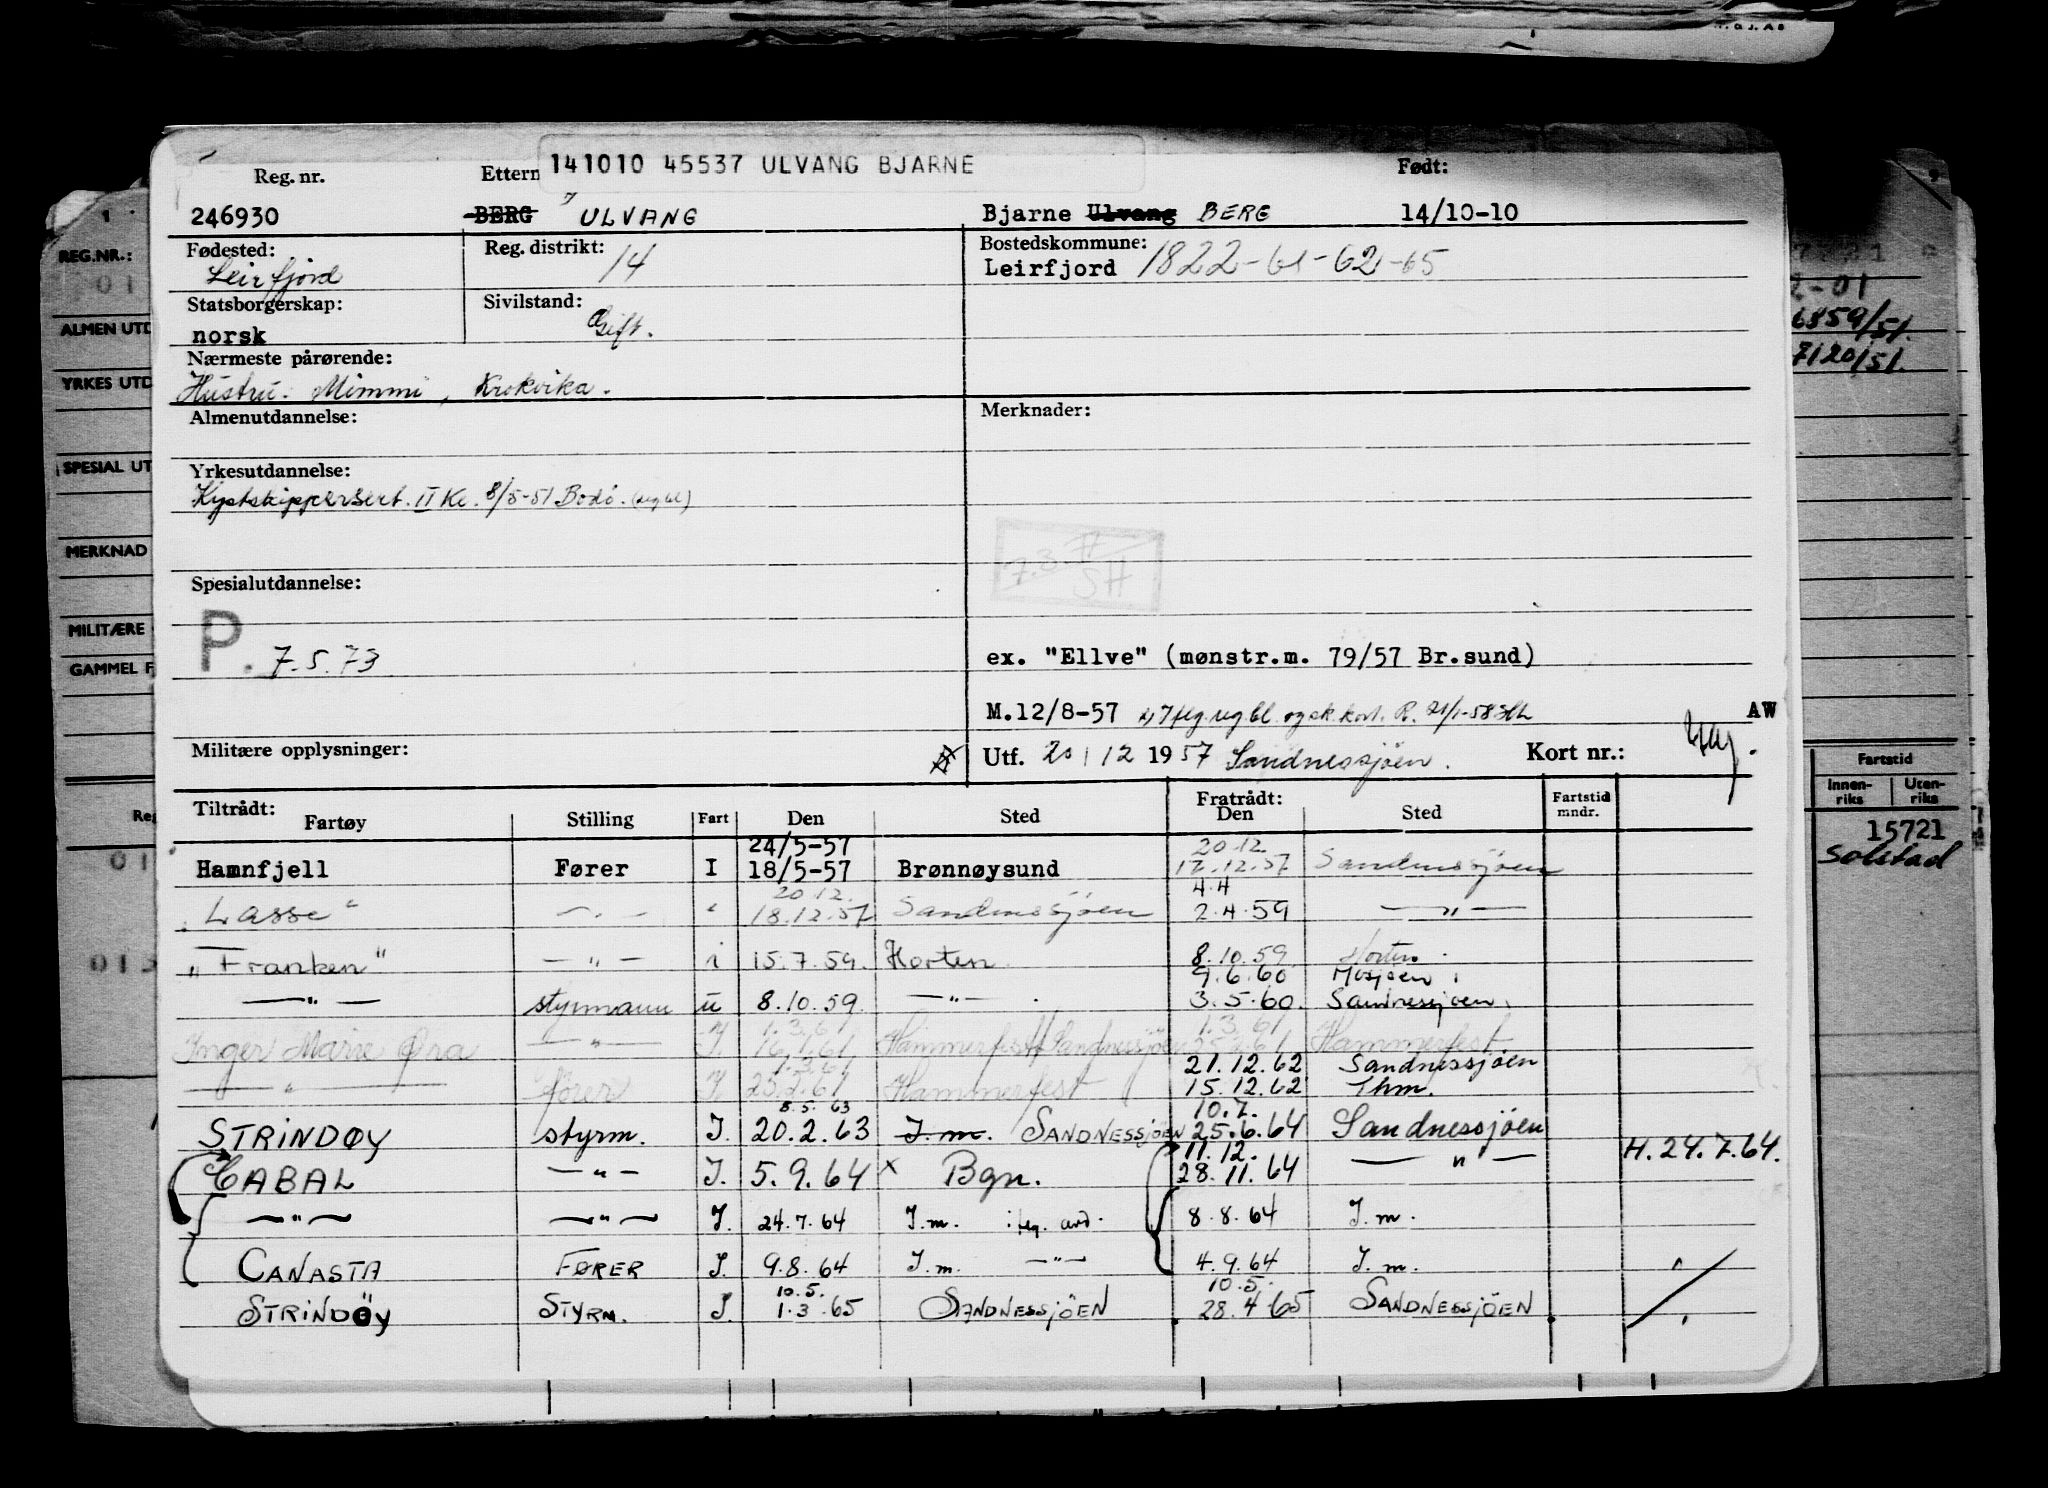 141010 45537 ULVANG BJARNE
Reg. nr. Ettern Født:
246930 BERG ULVANG Bjarne Ulvang BERG 14/10-10
Fødested: Reg. distrikt: Bostedskommune:
Leirfjord 14 Leirfjord 1822-61-62-65
Statsborgerskap: Sivilstand:
norsk Gift.
Nærmeste pårørende:
Hustru: Mimmi, Krokvika.
Almenutdannelse: Merknader:
Yrkesutdannelse:
Kystskippersert. II Kl. 8/5-51 Bodø.
7.3.
SH
Spesialutdannelse:
P. 7.5.73
ex. "Ellve" (mønstr.m. 79/57 Br.sund)
M.12/8-57 AW
Militære opplysninger: Utf. 20/12 1957 Sandnessjøen. Kort nr.:
Tiltrådt: Fratrådt:
Fartøy Stilling Fart Den Sted Den Sted Fartstid mndr.
24/5-57 20.12.
Hamnfjell Fører I 18/5-57 Brønnøysund 17.12.57 Sandnessjøen
20.12. 4.4
"Lasse" — " — " 18.12.57 Sandnessjøen 2.4.59 — " —
"Franken" — " — i 15.7.59. Horten 8.10.59 Horten.
9.6.60 Mosjøen
— " — styrmann u 8.10.59. — " — 3.5.60. Sandnessjøen.
1.3.61 1.3.61
Inger Marie Øra — " — I. 16.1.61 Hammerfest/Sandnessjøen 25.2.61 Hammerfest
1.3.61 21.12.62 Sandnessjøen
— " — fører I. 25.2.61 Hammerfest 15.12.62 Thm.
8.5.63 10.7.
STRINDØY styrm. I. 20.2.63 I.m. SANDNESSJØEN 25.6.64 Sandnessjöen
11.12. H.24.7.64.
CABAL — " — I. 5.9.64 x Bgn. 28.11.64 — " —
— " — — " — I. 24.7.64 I.m. 8.8.64 I.m.
CANASTA FØRER I. 9.8.64 I.m. — " — 4.9.64 I.m. "
10.5. 10.5.
STRINDÖY STYRM. I. 1.3.65 SANDNESSJÖEN 28.4.65 SANDNESSJÖEN "
REG.NR.:
ALMEN UTD
YRKES UTD
SPESIAL UT
MERKNAD
MILITÆRE
GAMMEL F
2-01
6859/51.
7120/51.
Fartstid
Innen-riks Uten-riks
15721
Solstad